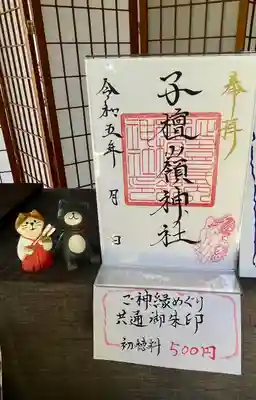 奉拝
子檀嶺神社
令和五年 月 日
ご神縁めぐり
共通御朱印
初穂料 500円